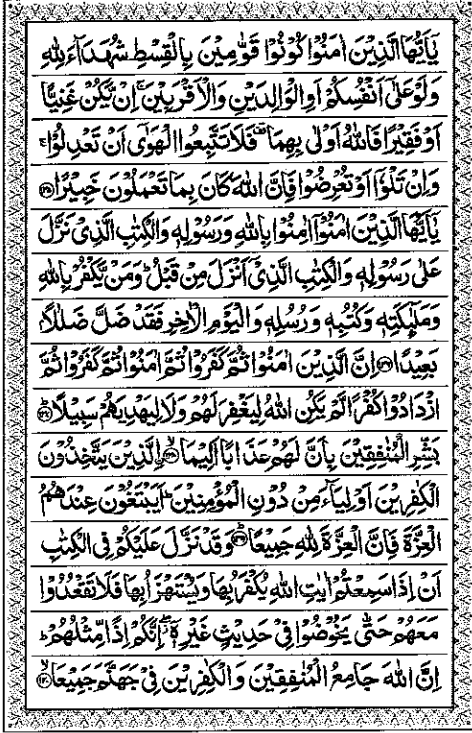 يٰۤاَيُّهَا الَّذِيۡنَ اٰمَنُوۡا كُوۡنُوۡا قَوّٰمِيۡنَ بِالۡقِسۡطِ شُهَدَآءَ لِلّٰهِ
وَلَوۡ عَلٰٓى اَنۡفُسِكُمۡ اَوِ الۡوَالِدَيۡنِ وَالۡاَقۡرَبِيۡنَ ۚ اِنۡ يَّكُنۡ غَنِيًّا
اَوۡ فَقِيۡرًا فَاللّٰهُ اَوۡلٰى بِهِمَا ۟ فَلَا تَتَّبِعُوا الۡهَوٰٓى اَنۡ تَعۡدِلُوۡا ۚ
وَاِنۡ تَلۡوٗۤا اَوۡ تُعۡرِضُوۡا فَاِنَّ اللّٰهَ كَانَ بِمَا تَعۡمَلُوۡنَ خَبِيۡرًا ﴿۱۳۵﴾
يٰۤاَيُّهَا الَّذِيۡنَ اٰمَنُوۡۤا اٰمِنُوۡا بِاللّٰهِ وَرَسُوۡلِهٖ وَالۡكِتٰبِ الَّذِىۡ نَزَّلَ
عَلٰى رَسُوۡلِهٖ وَالۡكِتٰبِ الَّذِىۡۤ اَنۡزَلَ مِنۡ قَبۡلُ ؕ وَمَنۡ يَّكۡفُرۡ بِاللّٰهِ
وَمَلٰٓئِكَتِهٖ وَكُتُبِهٖ وَرُسُلِهٖ وَالۡيَوۡمِ الۡاٰخِرِ فَقَدۡ ضَلَّ ضَلٰلًاۢ
بَعِيۡدًا ﴿۱۳۶﴾ اِنَّ الَّذِيۡنَ اٰمَنُوۡا ثُمَّ كَفَرُوۡا ثُمَّ اٰمَنُوۡا ثُمَّ كَفَرُوۡا ثُمَّ
ازۡدَادُوۡا كُفۡرًا لَّمۡ يَكُنِ اللّٰهُ لِيَغۡفِرَ لَهُمۡ وَلَا لِيَهۡدِيَهُمۡ سَبِيۡلًا ؕ﴿۱۳۷﴾
بَشِّرِ الۡمُنٰفِقِيۡنَ بِاَنَّ لَهُمۡ عَذَابًا اَلِيۡمَاۨ ۙ﴿۱۳۸﴾ الَّذِيۡنَ يَتَّخِذُوۡنَ
الۡكٰفِرِيۡنَ اَوۡلِيَآءَ مِنۡ دُوۡنِ الۡمُؤۡمِنِيۡنَ ؕ اَيَبۡتَغُوۡنَ عِنۡدَهُمُ
الۡعِزَّةَ فَاِنَّ الۡعِزَّةَ لِلّٰهِ جَمِيۡعًا ؕ﴿۱۳۹﴾ وَقَدۡ نَزَّلَ عَلَيۡكُمۡ فِى الۡكِتٰبِ
اَنۡ اِذَا سَمِعۡتُمۡ اٰيٰتِ اللّٰهِ يُكۡفَرُ بِهَا وَيُسۡتَهۡزَاُ بِهَا فَلَا تَقۡعُدُوۡا
مَعَهُمۡ حَتّٰى يَخُوۡضُوۡا فِىۡ حَدِيۡثٍ غَيۡرِهٖۤ ۖ اِنَّكُمۡ اِذًا مِّثۡلُهُمۡ ؕ
اِنَّ اللّٰهَ جَامِعُ الۡمُنٰفِقِيۡنَ وَالۡكٰفِرِيۡنَ فِىۡ جَهَنَّمَ جَمِيۡعَاۨ ۙ﴿۱۴۰﴾